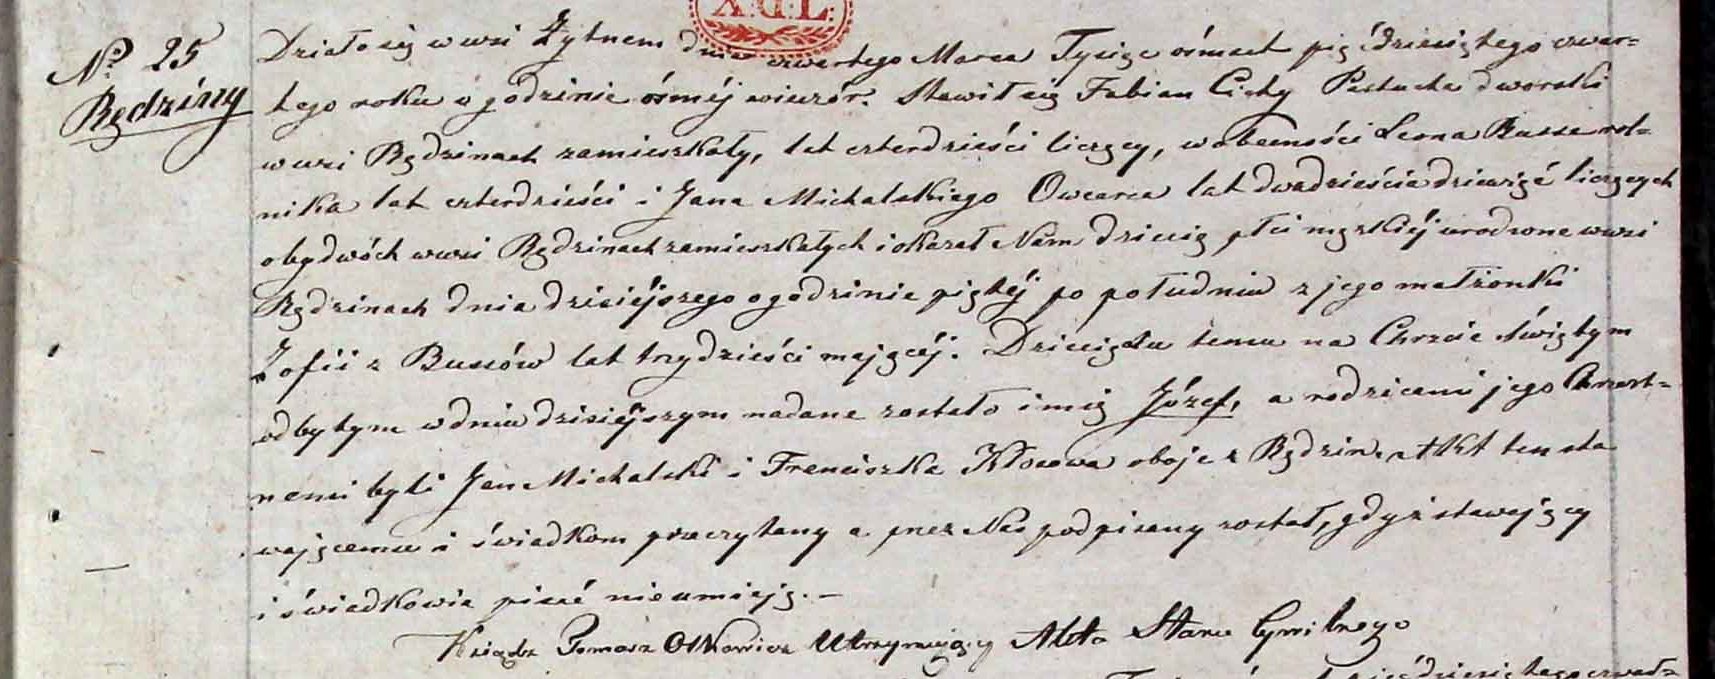 X.G.L.
Nº 25
Rędziny
Działo się w wsi Żytnem dnia czwartego Marca Tysiąc ośmset pięćdziesiątego czwar=
tego roku o godzinie ósméj wieczór. Stawił się Fabian Cichy Pastucha dworski
w wsi Rędzinach zamieszkały, lat czterdzieści liczący, w obecności Leona Busse rol=
nika lat czterdzieści i Jana Michalskiego Owcarza lat dwadzieścia dziewięć liczących
obydwóch w wsi Rędzinach zamieszkałych i okazał Nam dziecię płci męzkiéj urodzone w wsi
Rędzinach dnia dzisiéjszego o godzinie piątéj po południu z jego małżonki
Zofii z Bussów lat trzydzieści mającéj. Dziecięciu temu na Chrzcie świętym
odbytym w dniu dzisiéjszym nadane zostało imię Józef, a rodzicami jego Chrzest=
nemi byli Jan Michalski i Franciszka Kłocowa oboje z Rędzin. Akt ten sta
wającemu i świadkom przeczytany a przez Nas podpisany został, gdyż stawający
i świadkowie pisać nieumieją.
Ksiądz Tomasz Utrzymujący Akta Stanu Cywilnego